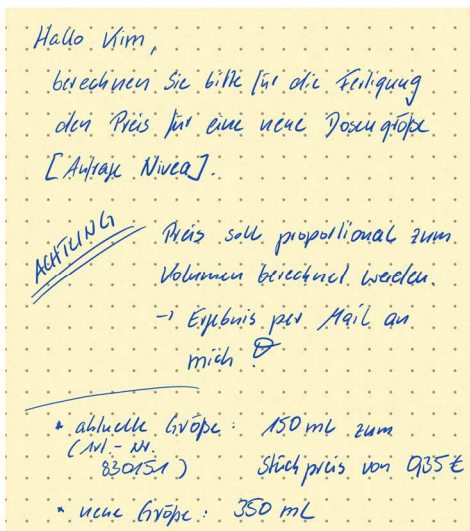 Hallo Kim,
berechnen Sie bitte für die Fertigung
den Preis für eine neue Dosengröße
[Anfrage Nivea].
ACHTUNG
Preis soll proportional zum
Volumen berechnet werden.
→ Ergebnis per Mail an
mich
* aktuelle Größe: 150 mL zum
(Art.-Nr.
830151) Stückpreis von 0,35 €
* neue Größe: 350 mL